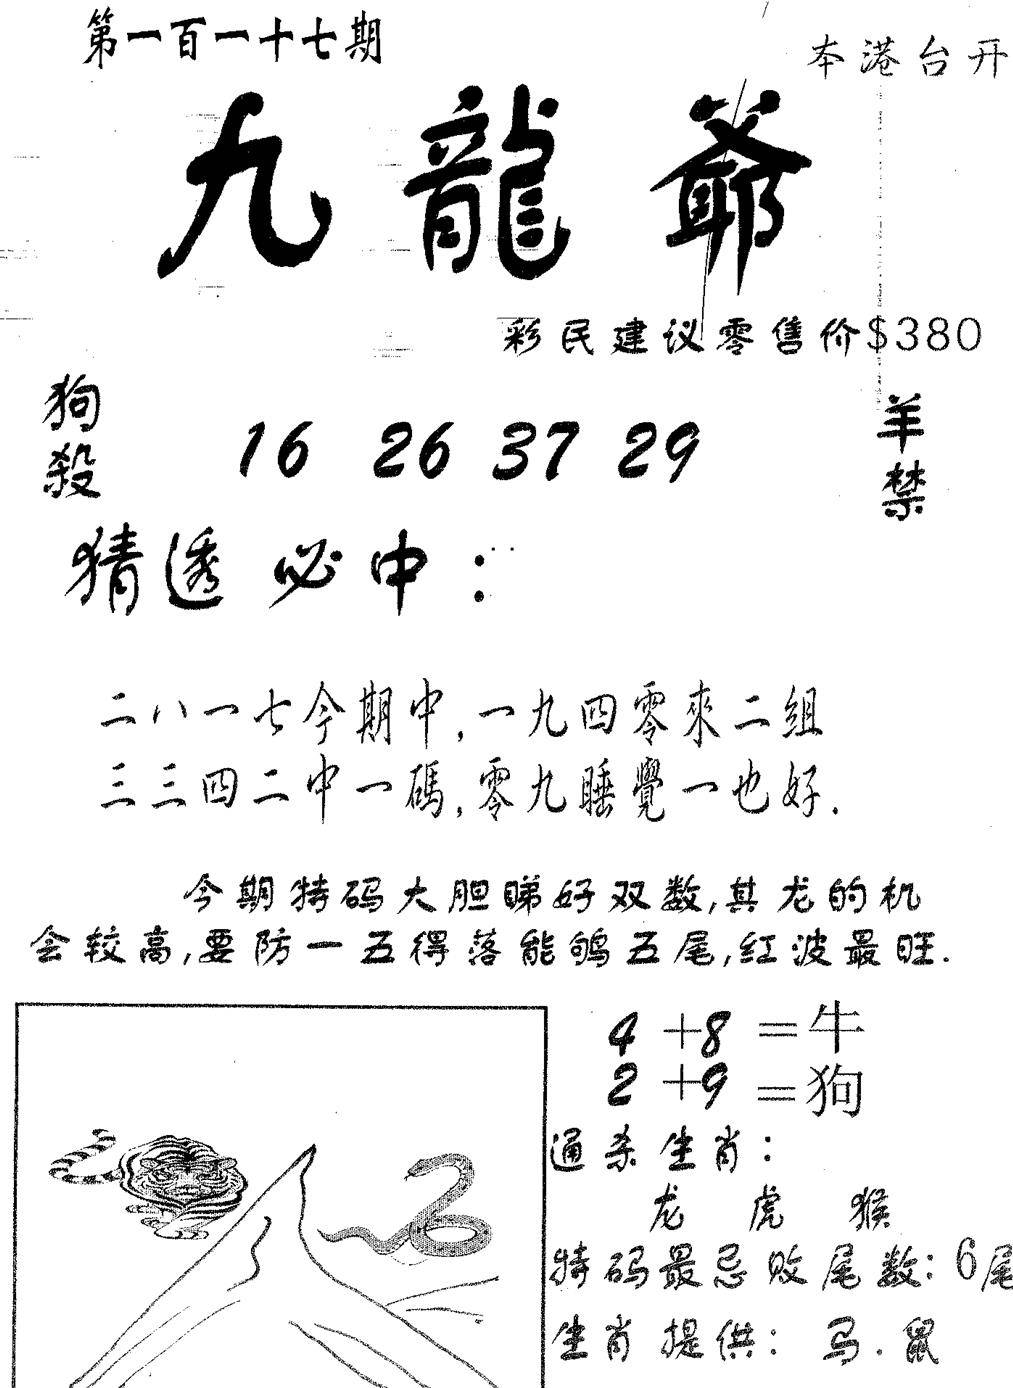 第一百一十七期
本港台开
九龍爺
彩民建议零售价$380
狗殺
16 26 37 29
羊禁
猜透必中：
二八一七今期中,一九四零來二組
三三四二中一碼,零九睡覺一也好.
今期特码大胆睇好双数,其龙的机
会较高,要防一五得落能鸲五尾,红波最旺.
4+8=牛
2+9=狗
通杀生肖：
龙 虎 猴
特码最忌败尾数：6尾
生肖提供：马.鼠